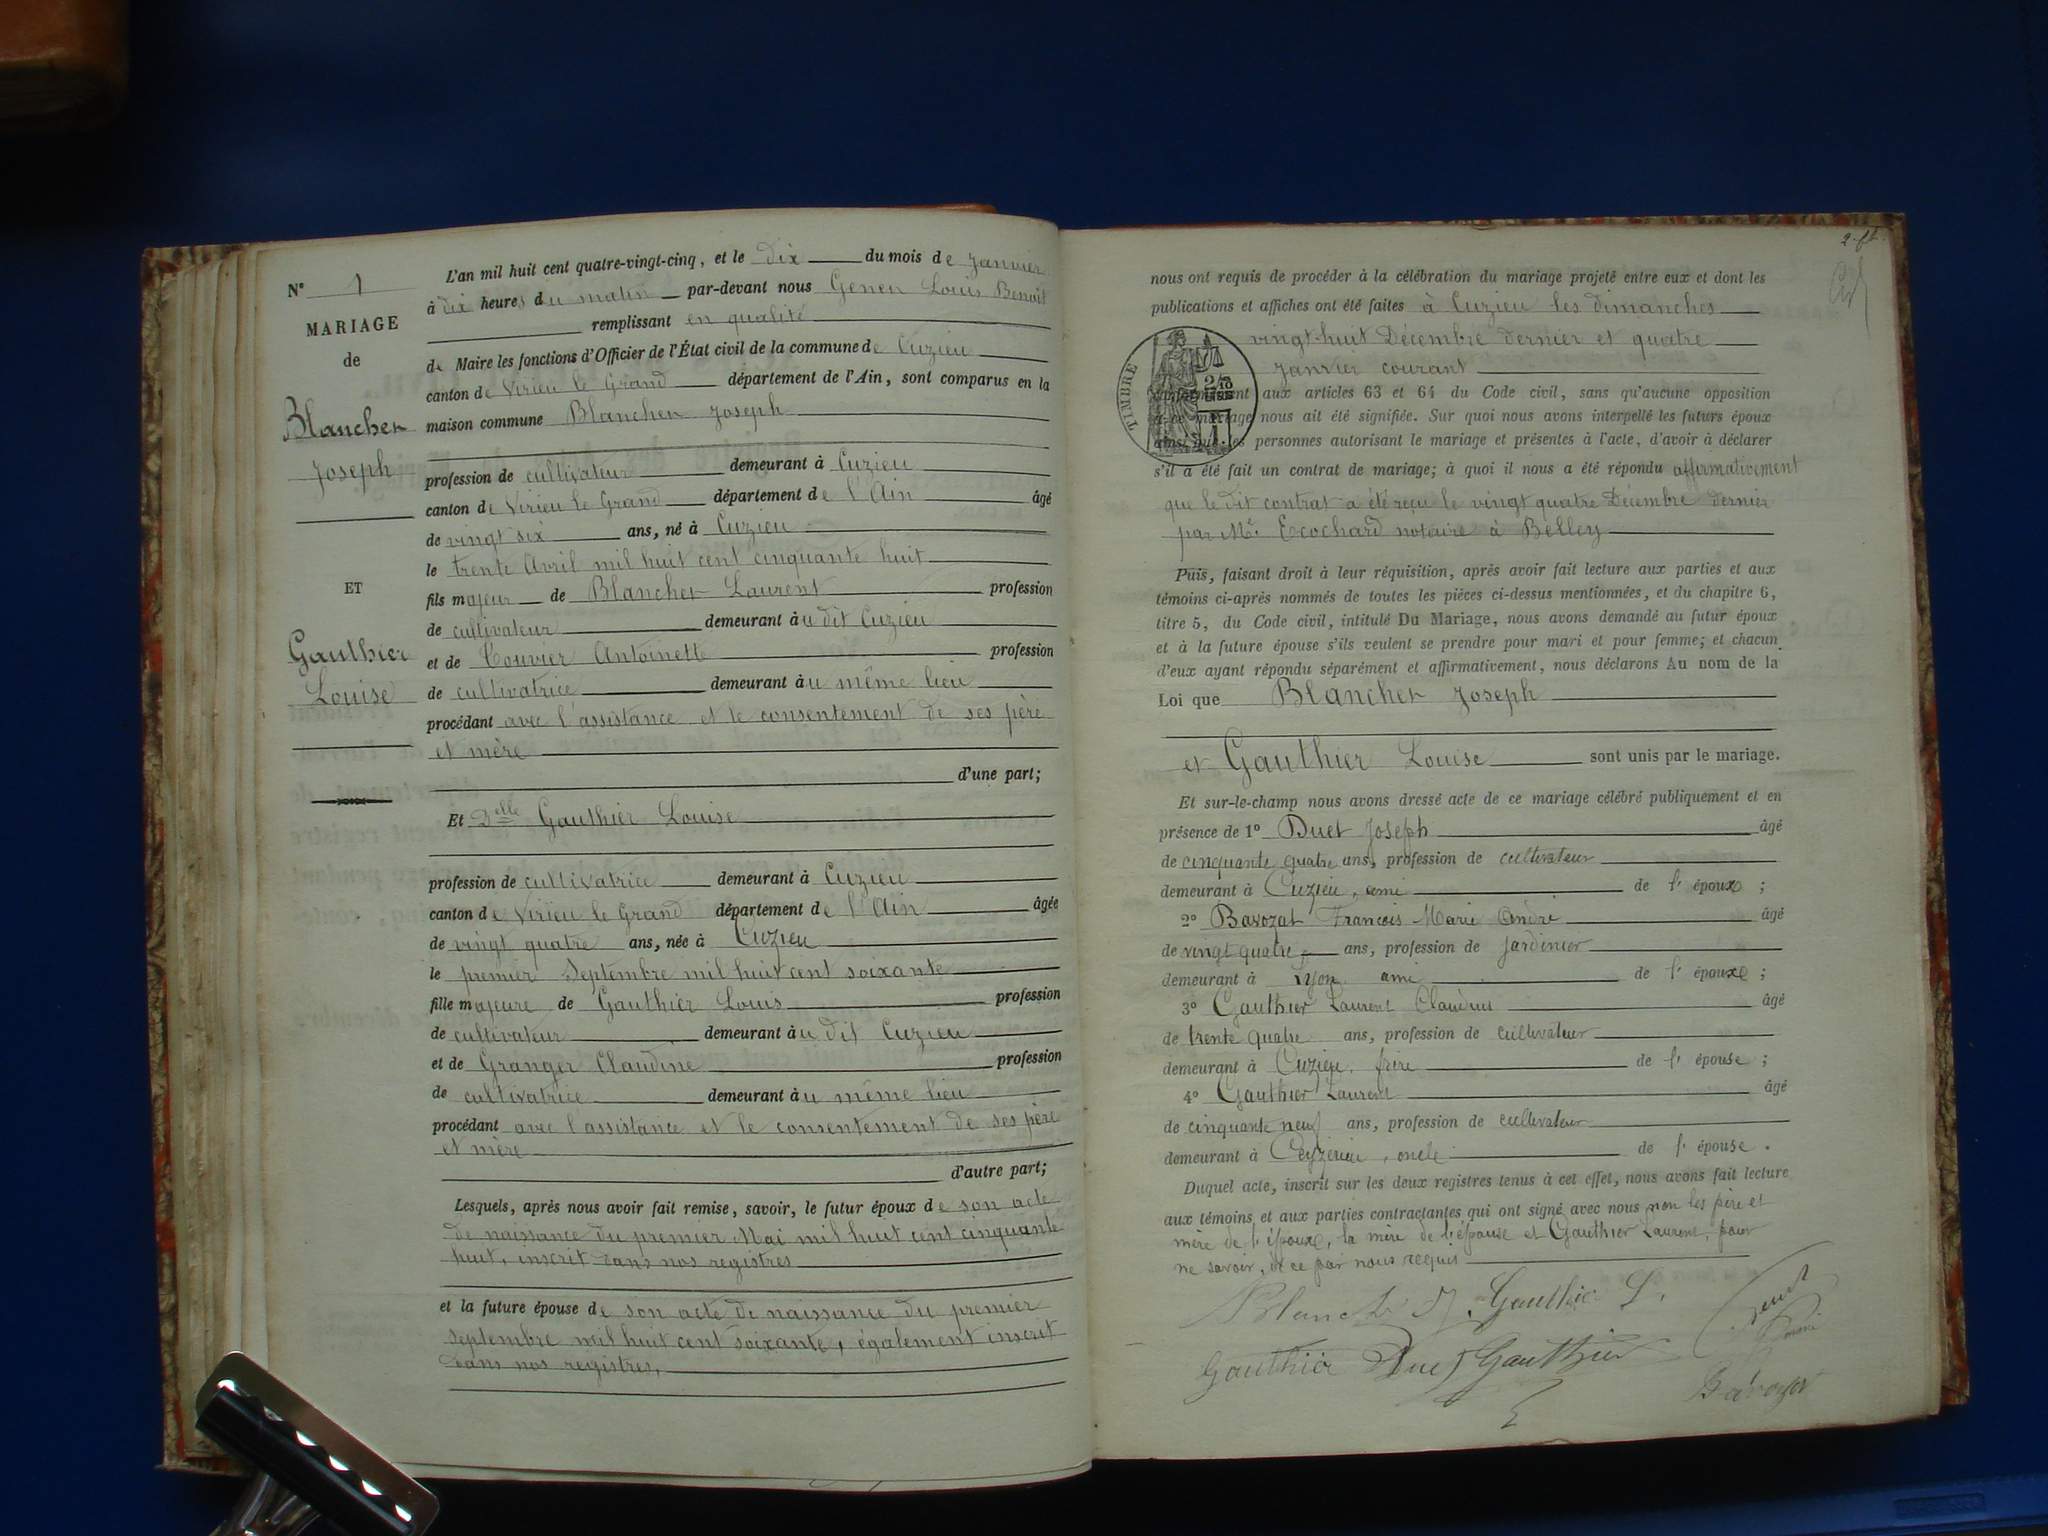 N° 1
MARIAGE
de
Blancher
Joseph
ET
Gauthier
Louise
L'an mil huit cent quatre-vingt-cinq, et le dix du mois de Janvier
à dix heures du matin par-devant nous Genen Louis Benoit
remplissant en qualité
de Maire les fonctions d'Officier de l'État civil de la commune de Cuzieu
canton de Virieu le Grand département de l'Ain, sont comparus en la
maison commune Blancher Joseph
profession de cultivateur demeurant à Cuzieu
canton de Virieu le Grand département de l'Ain âgé
de vingt six ans, né à Cuzieu
le trente Avril mil huit cent cinquante huit
fils majeur de Blancher Laurent profession
de cultivateur demeurant au dit Cuzieu
et de Couvier Antoinette profession
de cultivatrice demeurant au même lieu
procédant avec l'assistance et le consentement de ses père
et mère
d'une part;
Et Delle Gauthier Louise
profession de cultivatrice demeurant à Cuzieu
canton de Virieu le Grand département de l'Ain âgée
de vingt quatre ans, née à Cuzieu
le premier Septembre mil huit cent soixante
fille majeure de Gauthier Louis profession
de cultivateur demeurant au dit Cuzieu
et de Granger Claudine profession
de cultivatrice demeurant au même lieu
procédant avec l'assistance et le consentement de ses père
et mère
d'autre part;
Lesquels, après nous avoir fait remise, savoir, le futur époux de son acte
de naissance du premier Mai mil huit cent cinquante
huit, inscrit dans nos registres
et la future épouse de son acte de naissance du premier
septembre mil huit cent soixante, également inscrit
dans nos registres,
nous ont requis de procéder à la célébration du mariage projeté entre eux et dont les
publications et affiches ont été faites à Cuzieu les dimanches
vingt-huit Décembre dernier et quatre
janvier courant
TIMBRE
conformément aux articles 63 et 64 du Code civil, sans qu'aucune opposition
à ce mariage nous ait été signifiée. Sur quoi nous avons interpellé les futurs époux
ainsi que les personnes autorisant le mariage et présentes à l'acte, d'avoir à déclarer
s'il a été fait un contrat de mariage; à quoi il nous a été répondu affirmativement
que le dit contrat a été reçu le vingt quatre Décembre dernier
par Me Ecochard notaire à Belley
Puis, faisant droit à leur réquisition, après avoir fait lecture aux parties et aux
témoins ci-après nommés de toutes les pièces ci-dessus mentionnées, et du chapitre 6,
titre 5, du Code civil, intitulé Du Mariage, nous avons demandé au futur époux
et à la future épouse s'ils veulent se prendre pour mari et pour femme; et chacun
d'eux ayant répondu séparément et affirmativement, nous déclarons Au nom de la
Loi que Blancher Joseph
et Gauthier Louise sont unis par le mariage.
Et sur-le-champ nous avons dressé acte de ce mariage célébré publiquement et en
présence de 1° Duet Joseph âgé
de cinquante quatre ans, profession de cultivateur
demeurant à Cuzieu, ami de l'époux;
2° Bavozat François Marie André âgé
de vingt quatre ans, profession de jardinier
demeurant à Lyon ami de l'époux;
3° Gauthier Laurent Claudius âgé
de trente quatre ans, profession de cultivateur
demeurant à Cuzieu, frère de l'épouse;
4° Gauthier Laurent âgé
de cinquante neuf ans, profession de cultivateur
demeurant à Ceyzérieu, oncle de l'épouse.
Duquel acte, inscrit sur les deux registres tenus à cet effet, nous avons fait lecture
aux témoins et aux parties contractantes qui ont signé avec nous non les père et
mère de l'époux, la mère de l'épouse et Gauthier Laurent, pour
ne savoir, de ce par nous requis
Gauthier L.
Gauthier Duet Gauthier
Bavozat